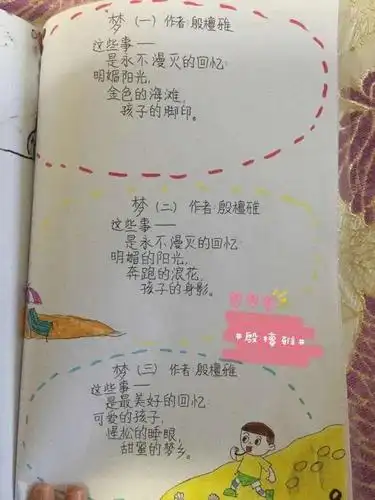 梦（一）作者:殷檀雅
这些事——
是永不漫灭的回忆:
明媚阳光,
金色的海滩,
孩子的脚印。
梦（二）作者:殷檀雅
这些事——
是永不漫灭的回忆:
明媚的阳光,
奔跑的浪花,
孩子的身影。
#殷檀雅#
梦（三）作者:殷檀雅
这些事——
是最美好的回忆:
可爱的孩子,
惺松的睡眼,
甜蜜的梦乡。